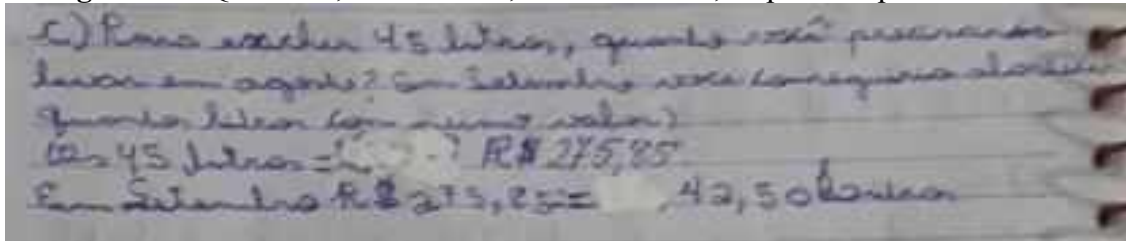 C) Para encher 45 litros, quanto você precisaria
levar em agosto? Em Setembro você conseguiria abastecer
quantos litros com mesmo valor?
R= 45 litros = R$ 275,85
Em Setembro R$ 275,85 = 42,50 litros